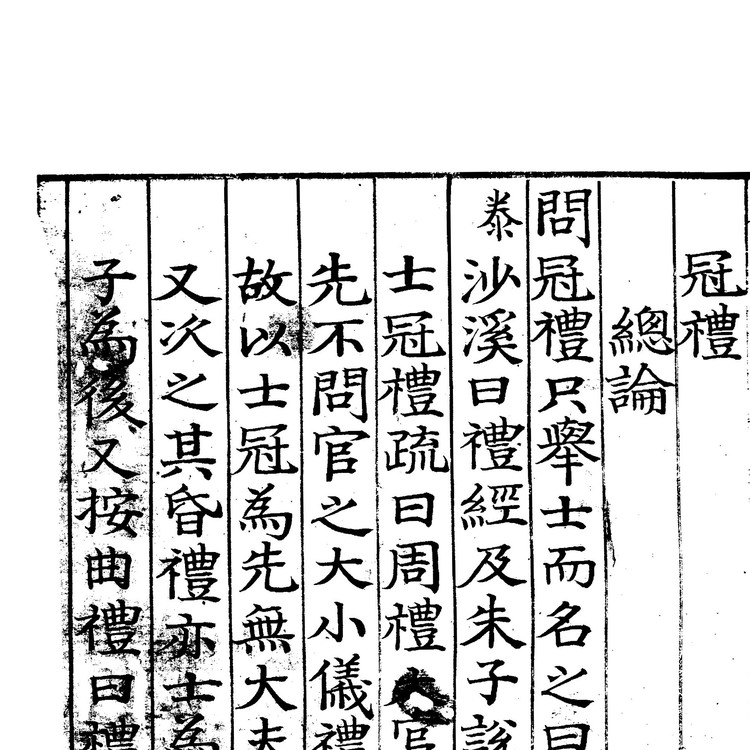 冠禮
總論
問冠禮只舉士而名之曰
泰沙溪曰禮經及朱子說
士冠禮疏曰周禮六官
先不問官之大小儀禮
故以士冠為先無大夫
又次之其昏禮亦士為
子為後又按曲禮曰禮